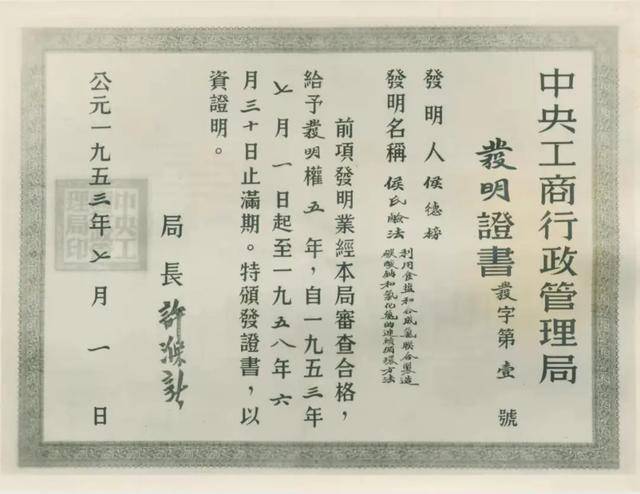 中央工商行政管理局
發明證書
發字第壹號
發明人 侯德榜
發明名稱 侯氏鹼法
利用食鹽和合成氨聯合製造
碳酸鈉和氯化氨的連續循環方法
前項發明業經本局審查合格，
給予發明權五年，自一九五三年
七月一日起至一九五八年六
月三十日止滿期。特頒發證書，以
資證明。
局長 許滌新
公元一九五三年七月一日
中央工商行政管理局印